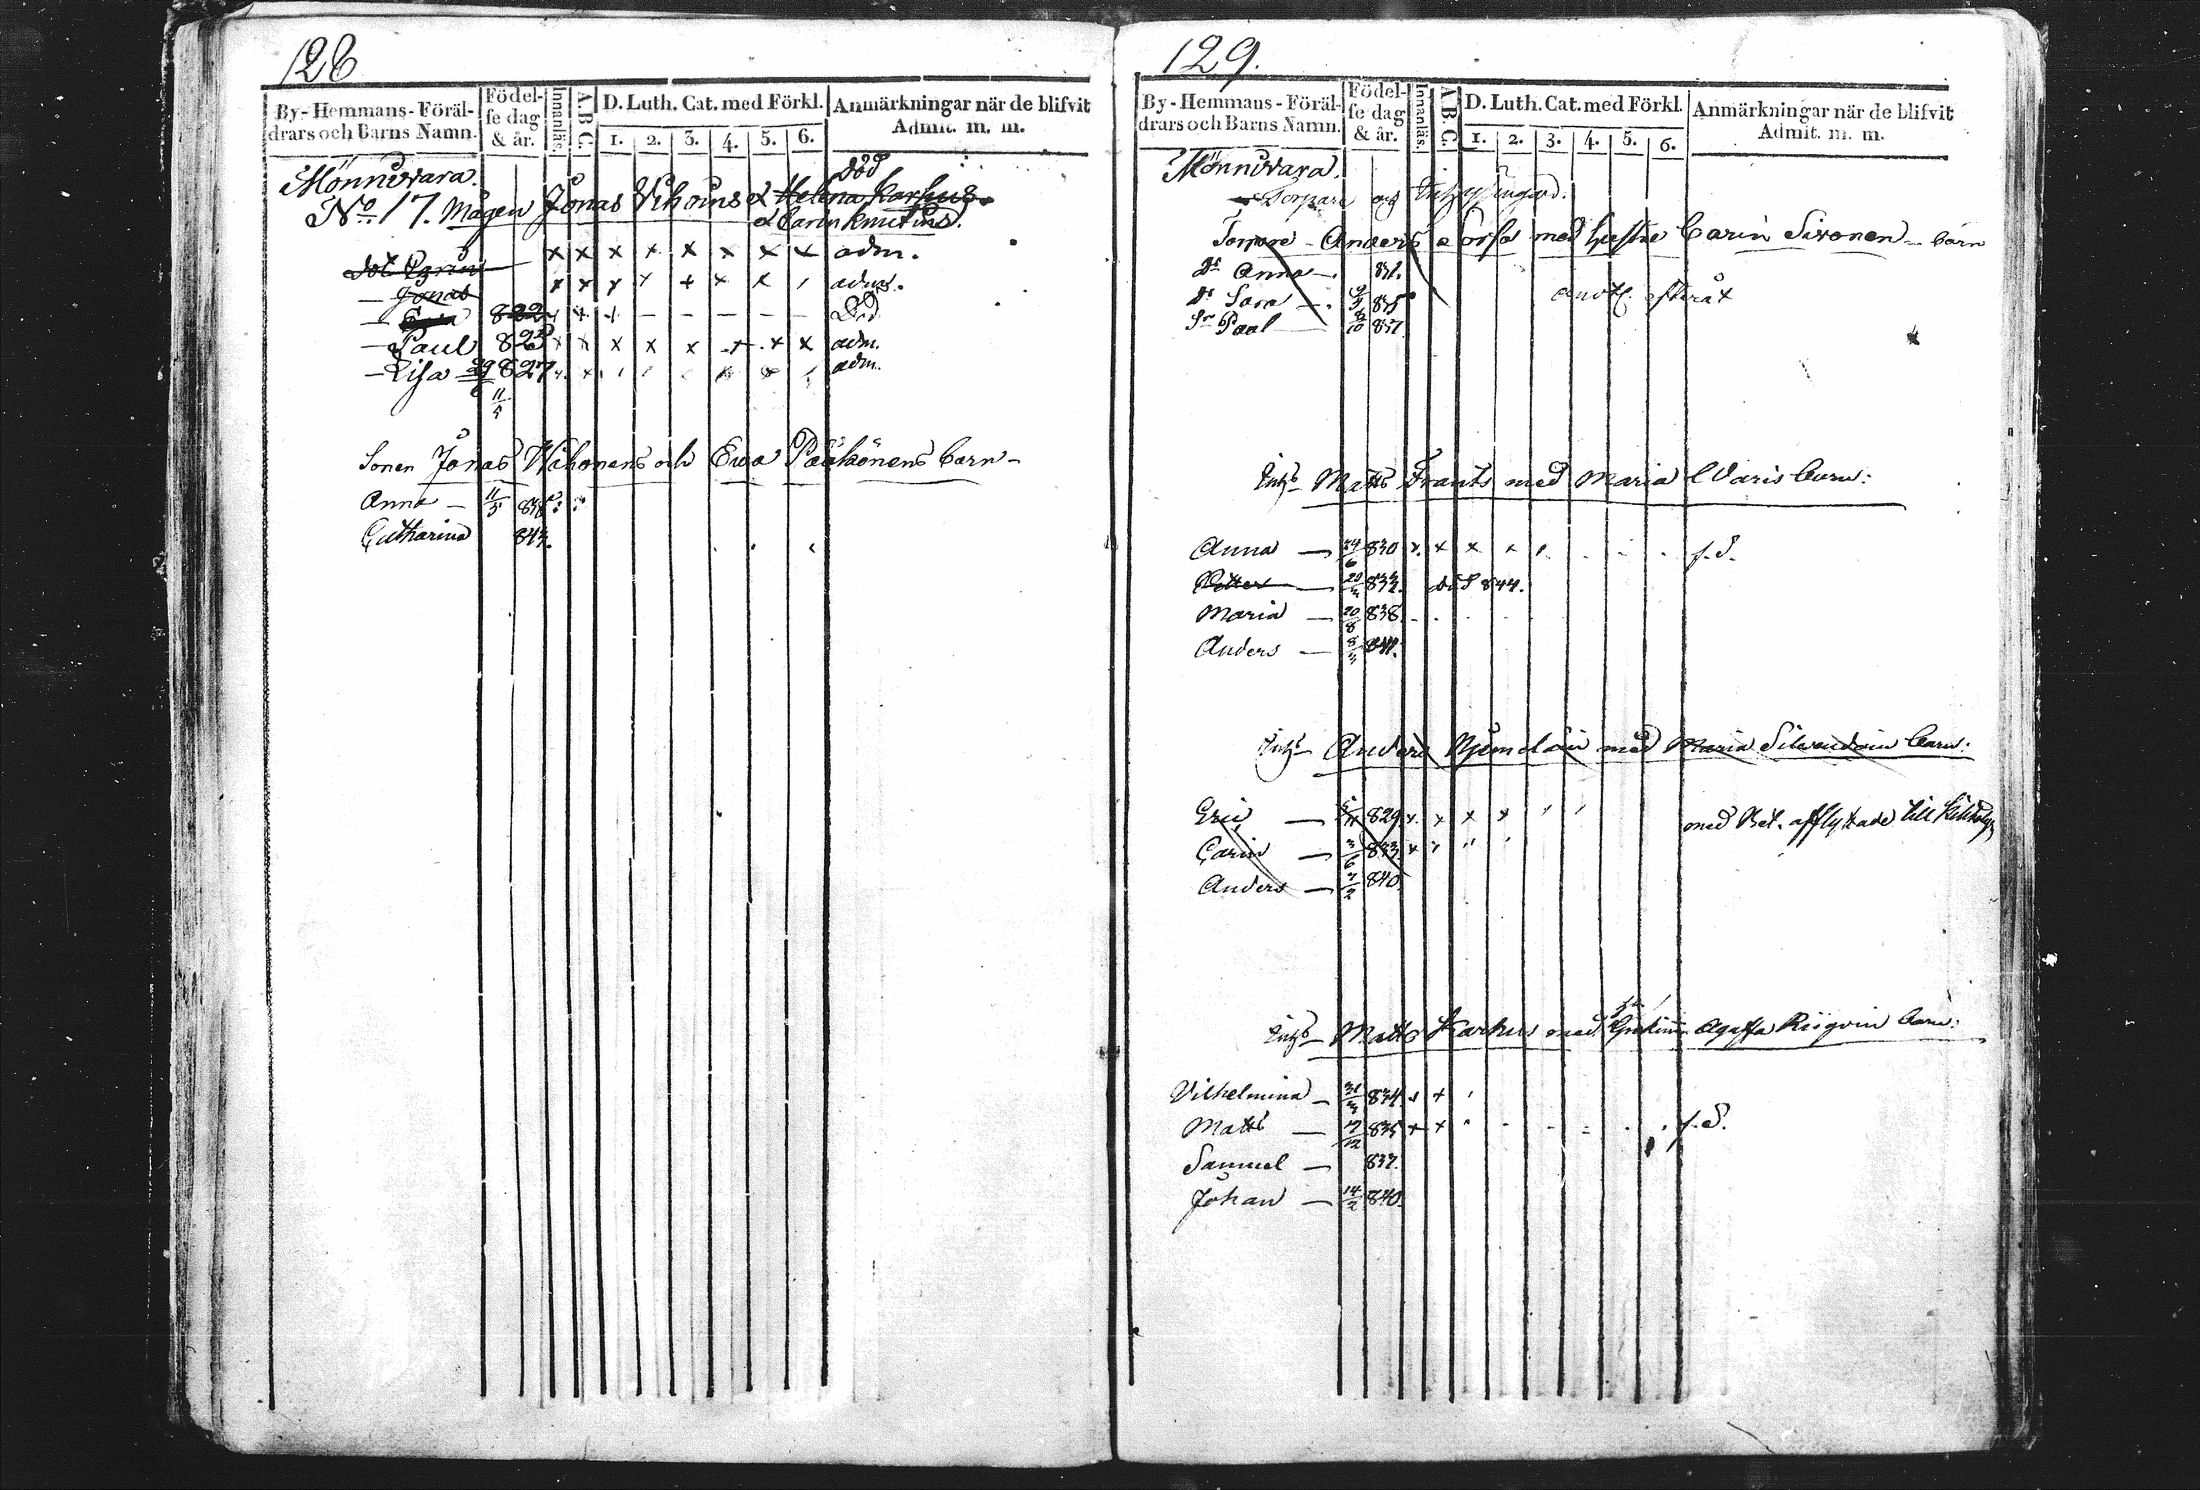 128
By-Hemmans-Föräl-drars och Barns Namn. Födel-se dag & år. Innanläs. A.B.C. D. Luth. Cat. med Förkl. 1. 2. 3. 4. 5. 6. Anmärkningar när de blifvit Admit. m. m.
Mönnivara.
död
No 17. Mågen Jonas Vihoins & Helena Karhus
& Carin Knutins.
dot Carin x x x x x x x x adm.
— Jonas x x x x + x x adm.
— 822 x x x — — — — — Död
— Paul 823 x x x x x x x x adm.
— Lisa 29/6 827 adm.
11/5
Sonen Jonas Wihonens och Ewa Pääkönens barn —
Anna — 11/5 838
Catharina 843.
129.
By-Hemmans-Föräl-drars och Barns Namn. Födel-se dag & år. Innanläs. A.B.C. D. Luth. Cat. med Förkl. 1. 2. 3. 4. 5. 6. Anmärkningar när de blifvit Admit. m. m.
Mönnivara.
Torpare og
Torpare — Anders med hustru Carin Sivonen — barn
Dr Anna — 831.
Dr Sara — 835
Sn Paal 837
Inhs Matts Frants med Maria Waris barn:
Anna — 24/6 830 x. x x x f. d.
Petter — död 844.
Maria — 20/8 838.
Anders — 841.
Inhs Anders med Maria Silvendoin barn:
Eric — 829 x. x x x med Bet. afflyttade till
Carin — 3/6 833 x
Anders — 7/2 840.
Inhs Matts Karhus med Agafia Riigoin barn:
Vilhelmina — 834 x +
Matts — 17/12 835 x x f. d.
Samuel — 837.
Johan — 14/2 840.